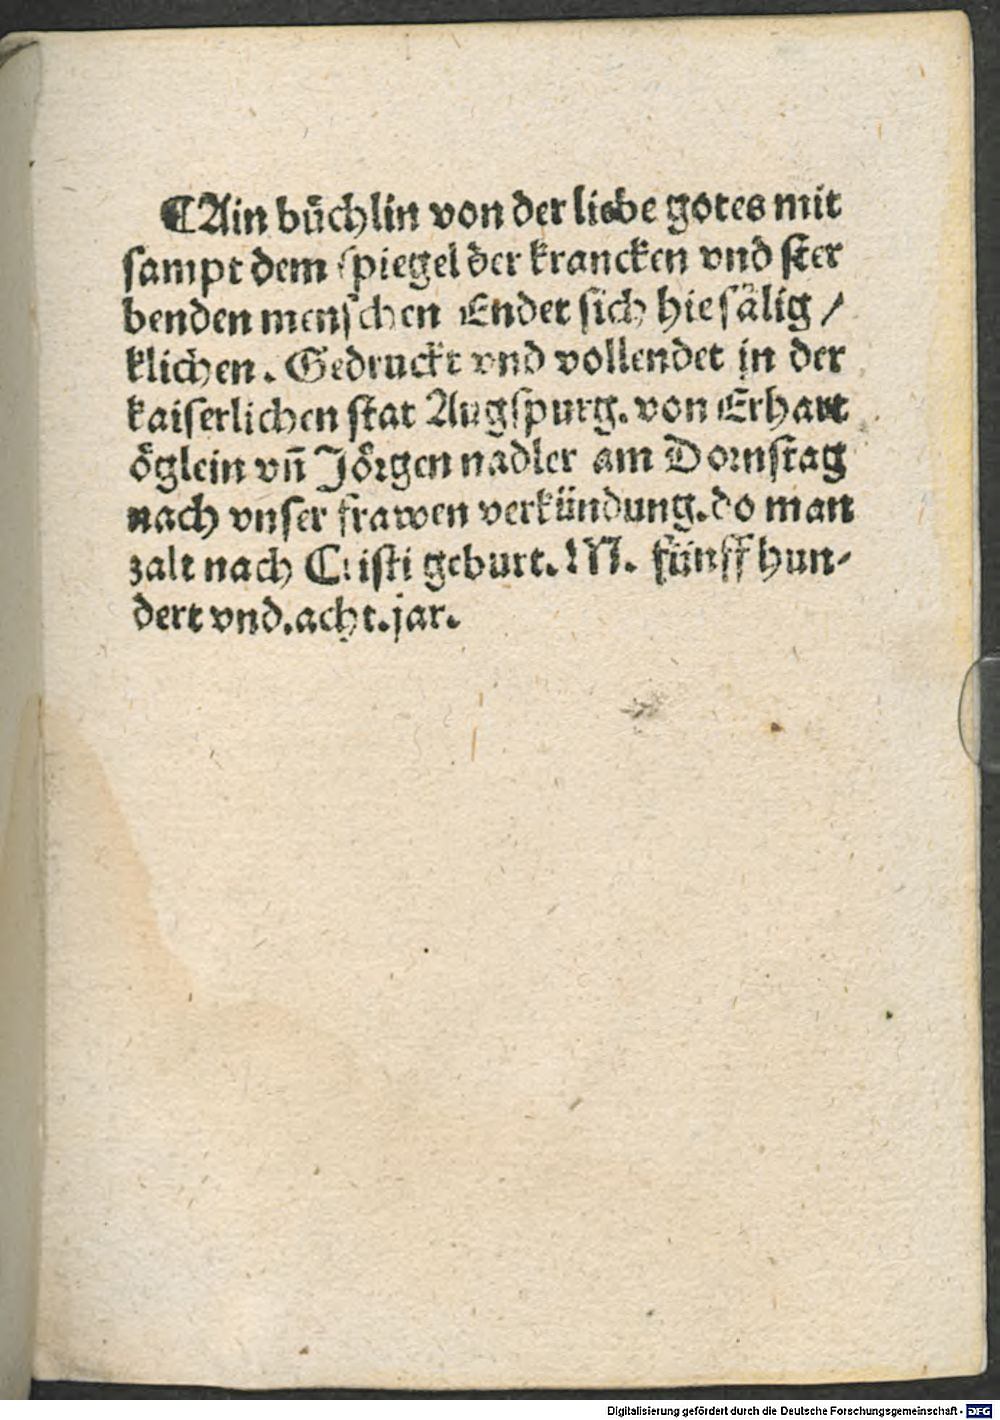 ¶Ain bůchlin von der liebe gotes mit
sampt dem spiegel der krancken vnd ster
benden menschen Endet sich hie sälig /
klichen. Gedruckt vnd vollendet in der
kaiserlichen stat Augspurg. von Erhart
öglein vñ Jörgen nadler am Dornstag
nach vnser frawen verkündung. do man
zalt nach Cristi geburt. M. fünff hun-
dert vnd. acht. jar.
Digitalisierung gefördert durch die Deutsche Forschungsgemeinschaft - DFG